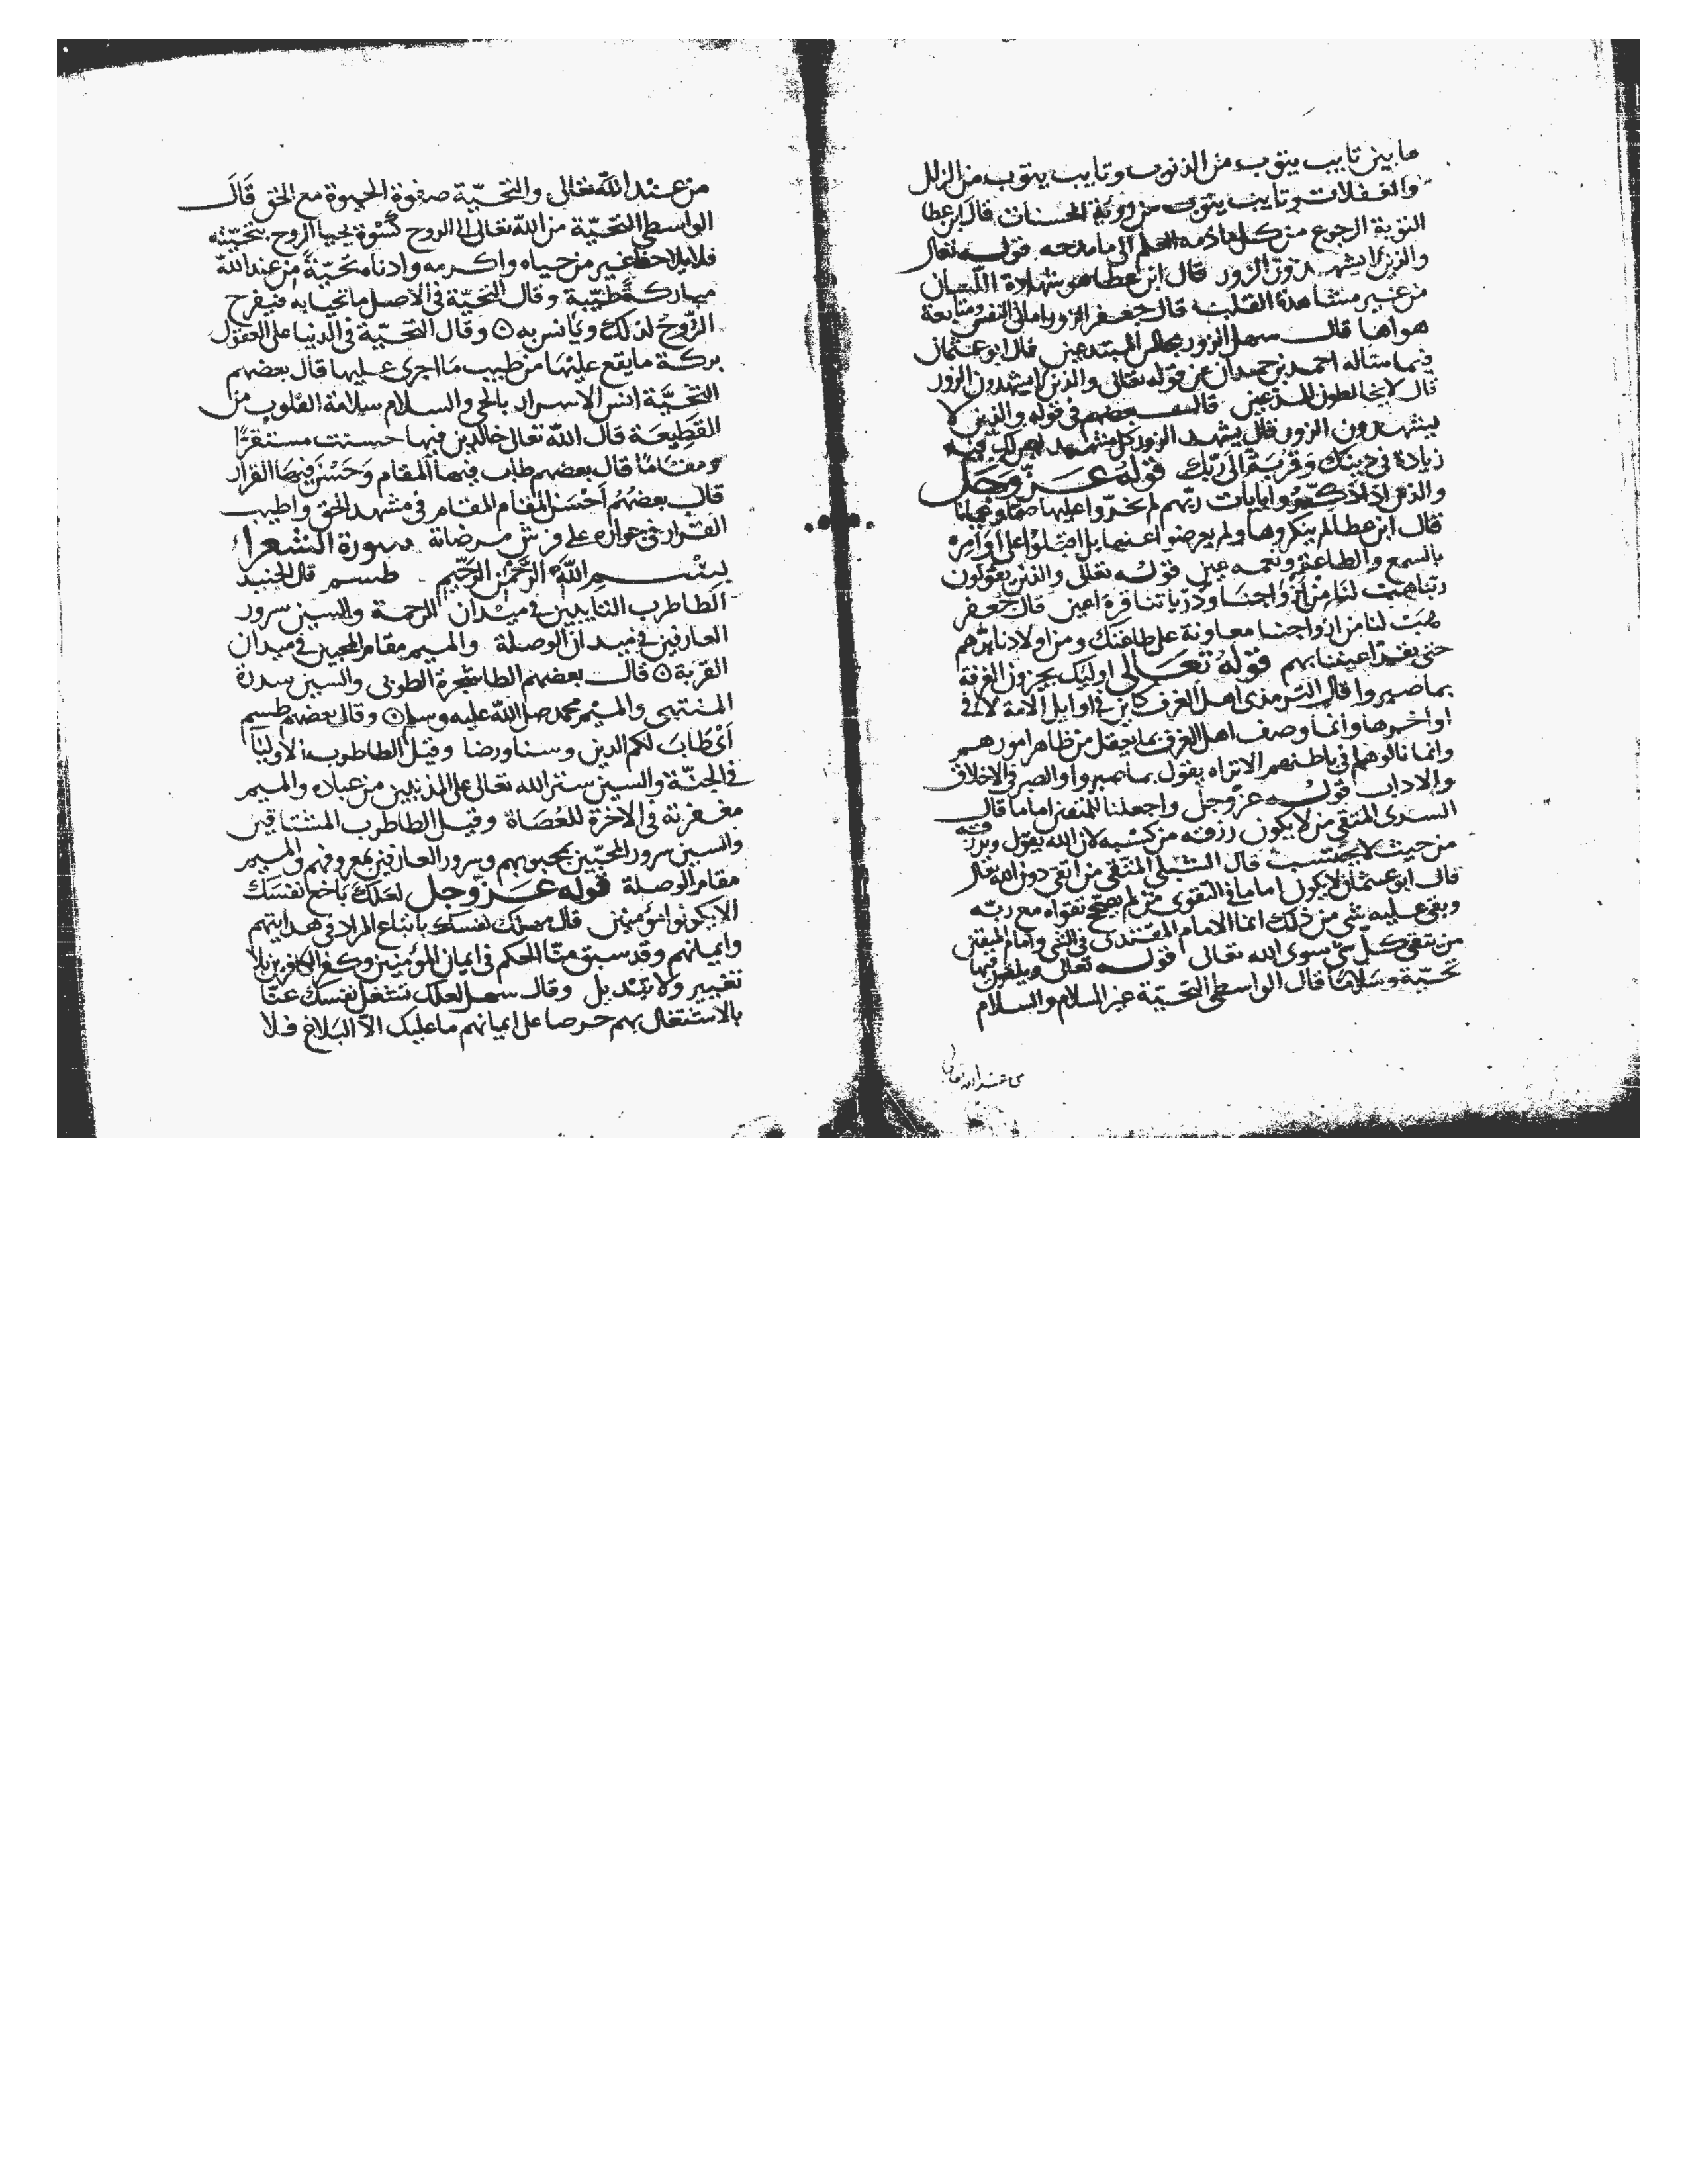 ما بين تايب يتوب من الذنوب وتايب يتوب من الزلل
والغفلات وتايب يتوب من روية الحسنات قال ابن عطا
التوبة الرجوع من كل ما ذمه العلم الى ما مدحه قوله تعالى
والذين لا يشهدون الزور قال ابن عطا هو شهادة اللسان
من غير مشاهدة القلب قال جعفر الزور اماني النفس ومتابعة
هواها قال سهل الزور مجالس المبتدعين قال ابو عثمان
فيما ساله احمد بن حمدان عن قوله تعالى والذين لا يشهدون الزور
قال لا يخالطون المدعين قال بعضهم في قوله والذين لا
يشهدون الزور قال يشهد الزور كل مشهد ليس لك فيه
زيادة في دينك وقربة الى ربك قوله عز وجل
والذين اذا ذكروا بايات ربهم لم يخروا عليها صما وعميانا
قال ابن عطا لم ينكروها ولم يعرضوا عنها بل اقبلوا على اوامره
بالسمع والطاعة ونعمه عين قوله تعالى والذين يقولون
ربنا هب لنا من ازواجنا وذرياتنا قرة اعين قال جعفر
هب لنا من ازواجنا معاونة على طاعتك ومن اولادنا برهم
حتى يقر اعيننا بهم قوله تعالى اوليك يجزون الغرفة
بما صبروا قال الترمذى اهل الغرف كاين في اوايل الامة لا في
اواخرها وانما وصف اهل الغرف بما يعقل من ظاهر امورهم
وانما نالوها في باطنهم الا تراه يقول بما صبروا والصبر في الاخلاق
والاداب قوله عز وجل واجعلنا للمتقين اماما قال
السدى المتقى من لا يكون رزقه من كسبه لان الله يقول ويرزقه
من حيث لا يحتسب قال الشبلي المتقى من اتقى دون الله تعالى
قال ابو عثمان لا يكون اماما في التقوى من لم يصحح تقواه مع ربه
وبقى عليه شى من ذلك انما الامام المقتدى في التقى وامام المتقين
من تقى كل شى سوى الله تعالى قوله تعالى ويلقون فيها
تحية وسلاما قال الواسطى التحية عن السلام والسلام
من عند الله تعالى
من عند الله تعالى والتحية صفوة الحيوة مع الحق قال
الواسطى التحية من الله تعالى الى الروح كسوة يحيا الروح بتحيته
فلا يلاحظ غير من حياه واكرمه وادناه تحية من عند الله
مباركة طيبة وقال التحية في الاصل ما تحيا به فيفرح
الروح لذلك ويأنس به ۞ وقال التحية في الدنيا على العقول
بركة ما يقع عليها من طيب ما اجرى عليها قال بعضهم
التحية انس الاسرار بالحى والسلام سلامة القلوب من
القطيعة قال الله تعالى خالدين فيها حسنت مستقرا
ومقاما قال بعضهم طاب فيها المقام وحسن فيها القرار
قال بعضهم احسن المقام المقام في مشهد الحق واطيب
القرار في جواره على فرش مرضاته سورة الشعراء
بسم الله الرحمن الرحيم طسم قال الجنيد
الطا طرب التايبين في ميدان الرحمة والسين سرور
العارفين في ميدان الوصلة والميم مقام المحبين في ميدان
القربة ۞ قال بعضهم الطا شجرة الطوبى والسين سدرة
المنتهى والميم محمد صلى الله عليه وسلم ۞ وقال بعضهم طسم
أى طاب لكم الدين وسنا ورضا وقيل الطا طرب الاوليا
في الجنة والسين ستر الله تعالى على المذنبين من عباده والميم
مغفرته في الاخرة للعصاة وقيل الطا طرب المشتاقين
والسين سرور المحبين بمحبوبهم وسرور العارفين بمعروفهم والميم
مقام الوصلة قوله عز وجل لعلك باخع نفسك
الا يكونوا مؤمنين قال مهلك نفسك باتباع المراد في هدايتهم
وايمانهم وقد سبق منا الحكم في ايمان المؤمنين وكفر الكافرين بلا
تغيير ولا تبديل وقال سهل لعلك تشغل نفسك عنا
بالاشتغال بهم حرصا على ايمانهم ما عليك الا البلاغ فلا